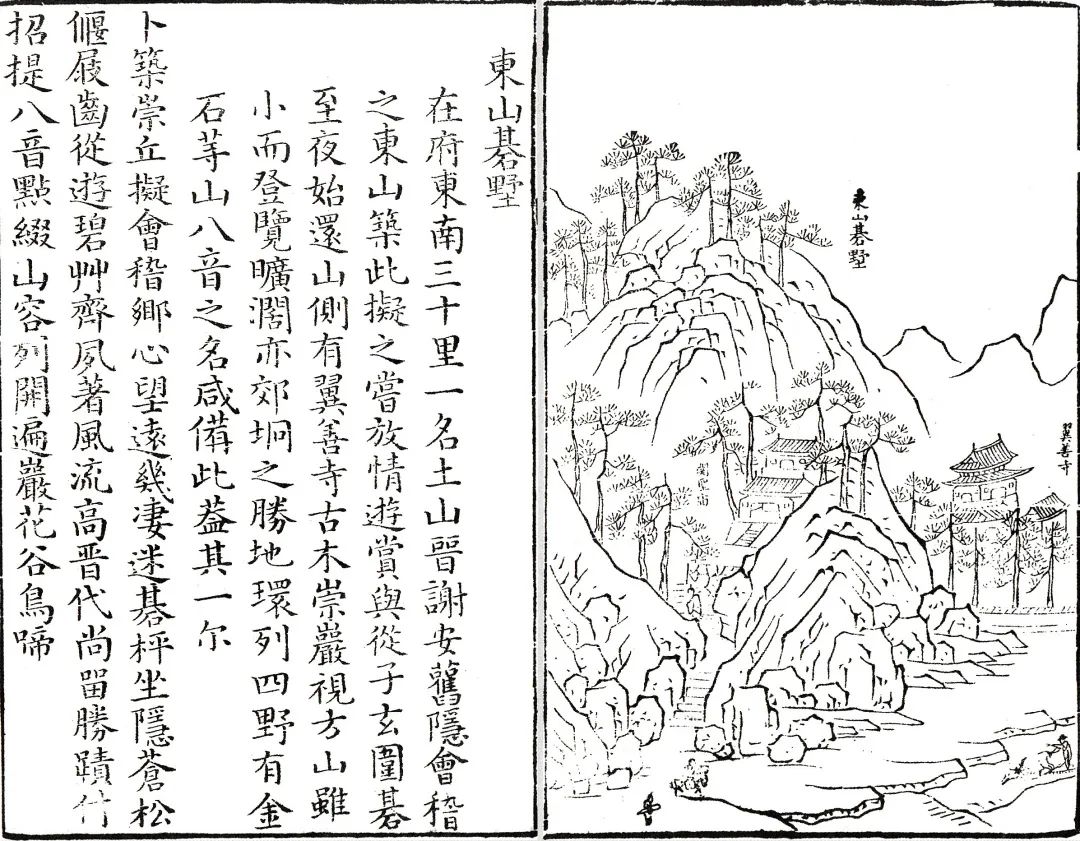 東山碁墅
翼善寺
關聖廟
東山碁墅
在府東南三十里一名土山晉謝安舊隱會稽
之東山築此擬之嘗放情遊賞與從子玄圍碁
至夜始還山側有翼善寺古木崇巖視方山雖
小而登覽曠濶亦郊坰之勝地環列四野有金
石等山八音之名咸備此葢其一尔
卜築崇丘擬會稽鄉心望遠幾凄迷碁枰坐隱蒼松
偃屐齒從遊碧艸齊夙著風流高晋代尚畱勝蹟付
招提八音點綴山容列開遍巖花谷鳥啼